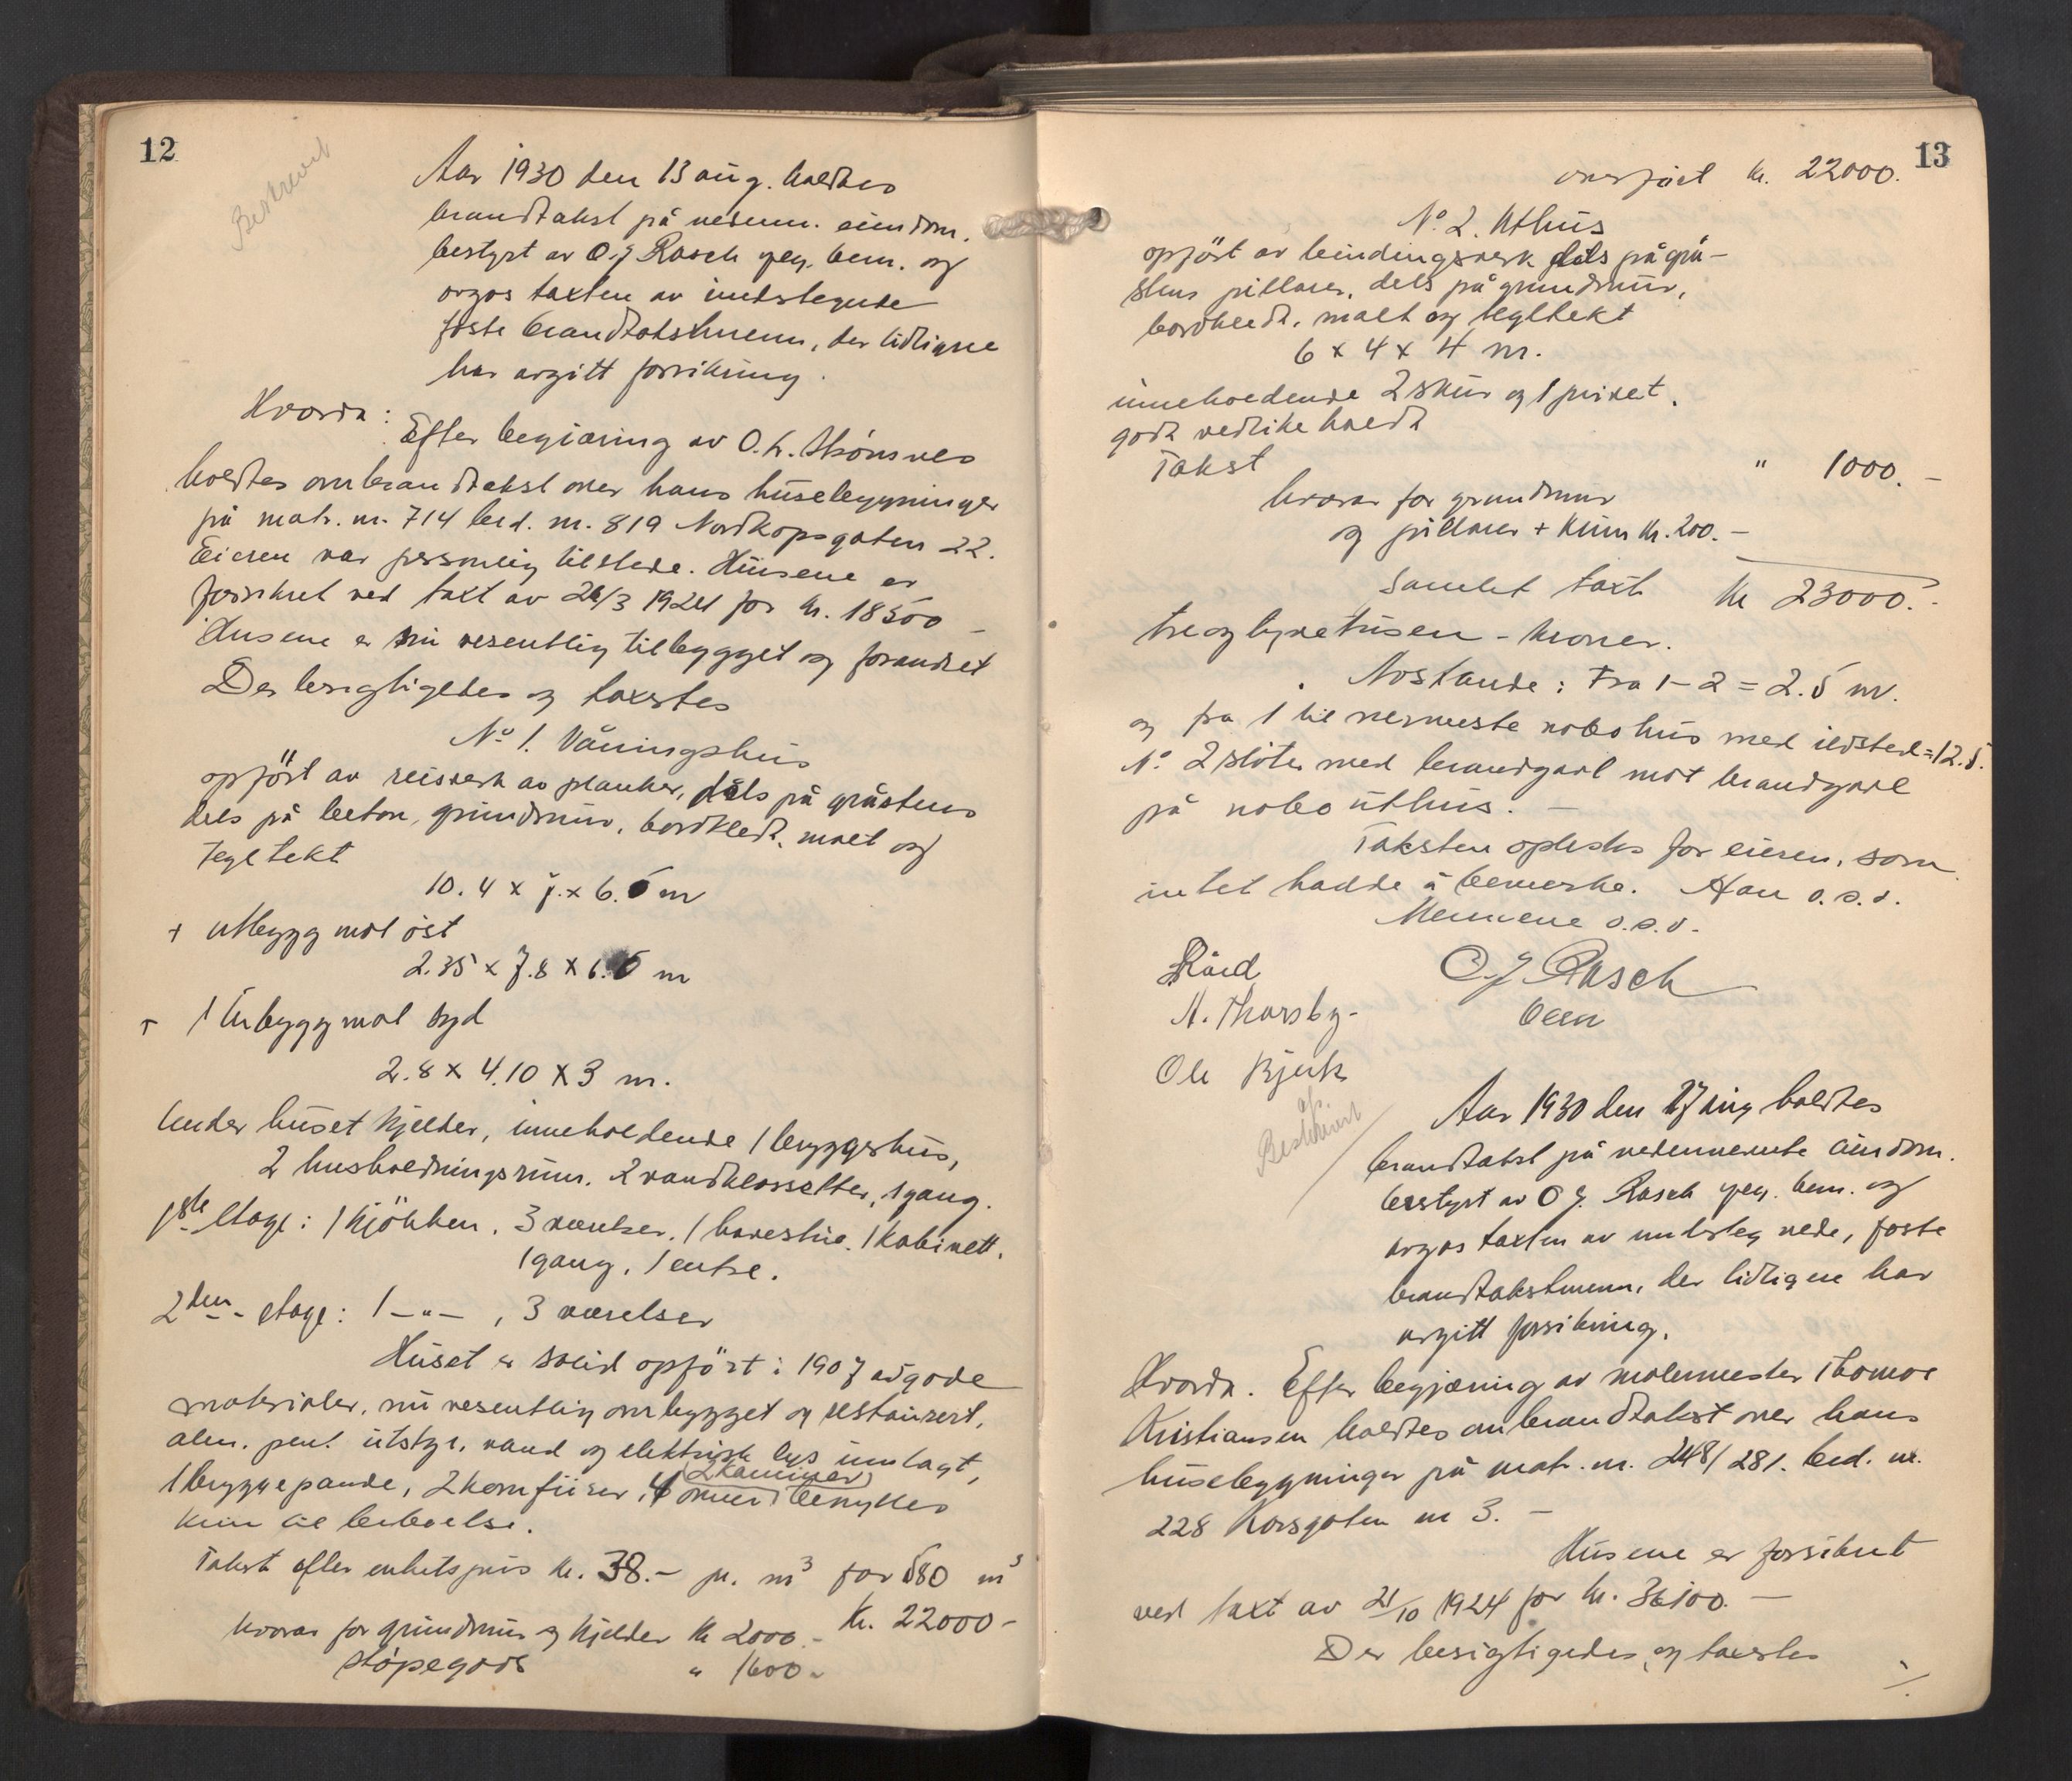 12
Beskrevet
Aar 1930 den 13 aug. holdtes
brandtakst på nedenn. eiendom.
bestyrt av O. J. Rasch geg. bem. og
avgas taxten av undertegnede
faste brandtakstmenn, der tidligere
har avgitt forsikring.
Hvorda:
Efter begjæring av O. L. Strömsnes
holdtes ombrandtakst over hans husebygninger
på matr. nr. 714 brd. nr. 819 Nordkapsgaten 22.
Eieren var personlig tilstede. Husene er
forsikret ved taxt av 26/3 1924 for kr. 18500 –
Husene er nu vesentlig tilbygget og forandret
Der besigtigedes og taxertes
No 1. Våningshus
opfört av reisverk av planker, dels på gråstens
dels på beton, grundmur, bordkledt, malt og
Tegltekt
10.4 x 7. x 6.5 m
+ utbygg mot öst
2.35 x 7.8 x 6.5 m
+ 1 Utbygg mot syd
2.8 x 4.10 x 3 m.
Under huset kjelder, inneholdende 1 bryggerhus,
2 husholdningsrum. 2 vandklosetter, 1 gang.
1ste Etage: 1 kjökken, 3 værelser, 1 havestue. 1 kabinett.
1 gang, 1 entre.
2den - etage: 1 –"– , 3 værelser
Huset er solid opfört i 1907 av gode
materialer, nu vesentlig ombygget og restaurert,
alm. pent utstyr, vand og elektrisk lys innlagt,
1 bryggepande, 2 komfurer, 4 ovner (2 kaminer) benyttes
kun til beboelse.
Takst efter enhetspris kr. 38.– pr. m3 for 580 m3
Kr. 22000 –
hvorav for grundmur og kjelder kr 2000.–
støpegods " 1600 –
13
overfört kr. 22000.
No. 2. Uthus
opfört av bindingsverk dels på grå-
stens pillarer, dels på grundmur,
bordkledt, malt og tegltekt
6 x 4 x 4 m.
inneholdende 2 skur og 1 privet.
godt vedlikeholdt
Takst " 1000. –
hvorav for grundmur
og pillarer + kum kr. 200. –
Samlet taxt kr 23000. –
treogtyvetusen - kroner.
Avstande: Fra 1 – 2 = 2.5 m.
og fra 1 til nermeste nabohus med ildsted = 12.5.
No. 2 slöter med brandgavl mot brandgavl
på nabo uthus. –
Taksten oplestes for eieren, som
intet hadde å bemerke. Han o.s.v.
Mennene o.s.v.
A. Thorsby -
Ole Bjerk
O J Rasch
bem
Beskrevet
Aar 1930 den 27 aug holdtes
brandtakst på nedennevnte eiendom.
bestyrt av O J. Rasch geg. bem. og
avgas taxten av undertegnede, faste
brandtakstmenn, der tidligere har
avgitt forsikring.
Hvorda. Efter begjæring av malermester Thomas
Kristiansen holdtes ombrandtakst over hans
husebygninger på matr. nr. 248/281. brd. nr.
228 Korsgaten nr 3. –
Husene er forsikret
ved taxt av 21/10 1924 for kr. 36100. –
Der besigtigedes og taxertes
./.